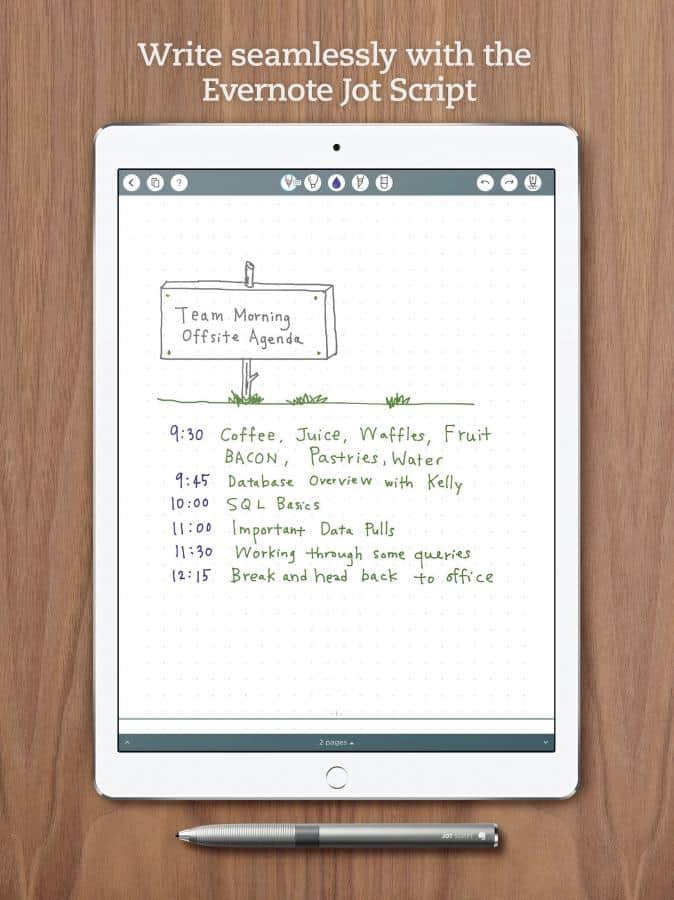 Write seamlessly with the
Evernote Jot Script
?
Team Morning
Offsite Agenda
9:30 Coffee, Juice, Waffles, Fruit
BACON, Pastries, Water
9:45 Database Overview with Kelly
10:00 SQL Basics
11:00 Important Data Pulls
11:30 Working through some queries
12:15 Break and head back to office
- 1 -
2 pages
JOT SCRIPT